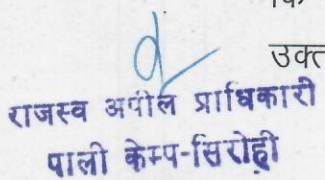 कि
उक्त
राजस्व अपील प्राधिकारी
पाली केम्प-सिरोही